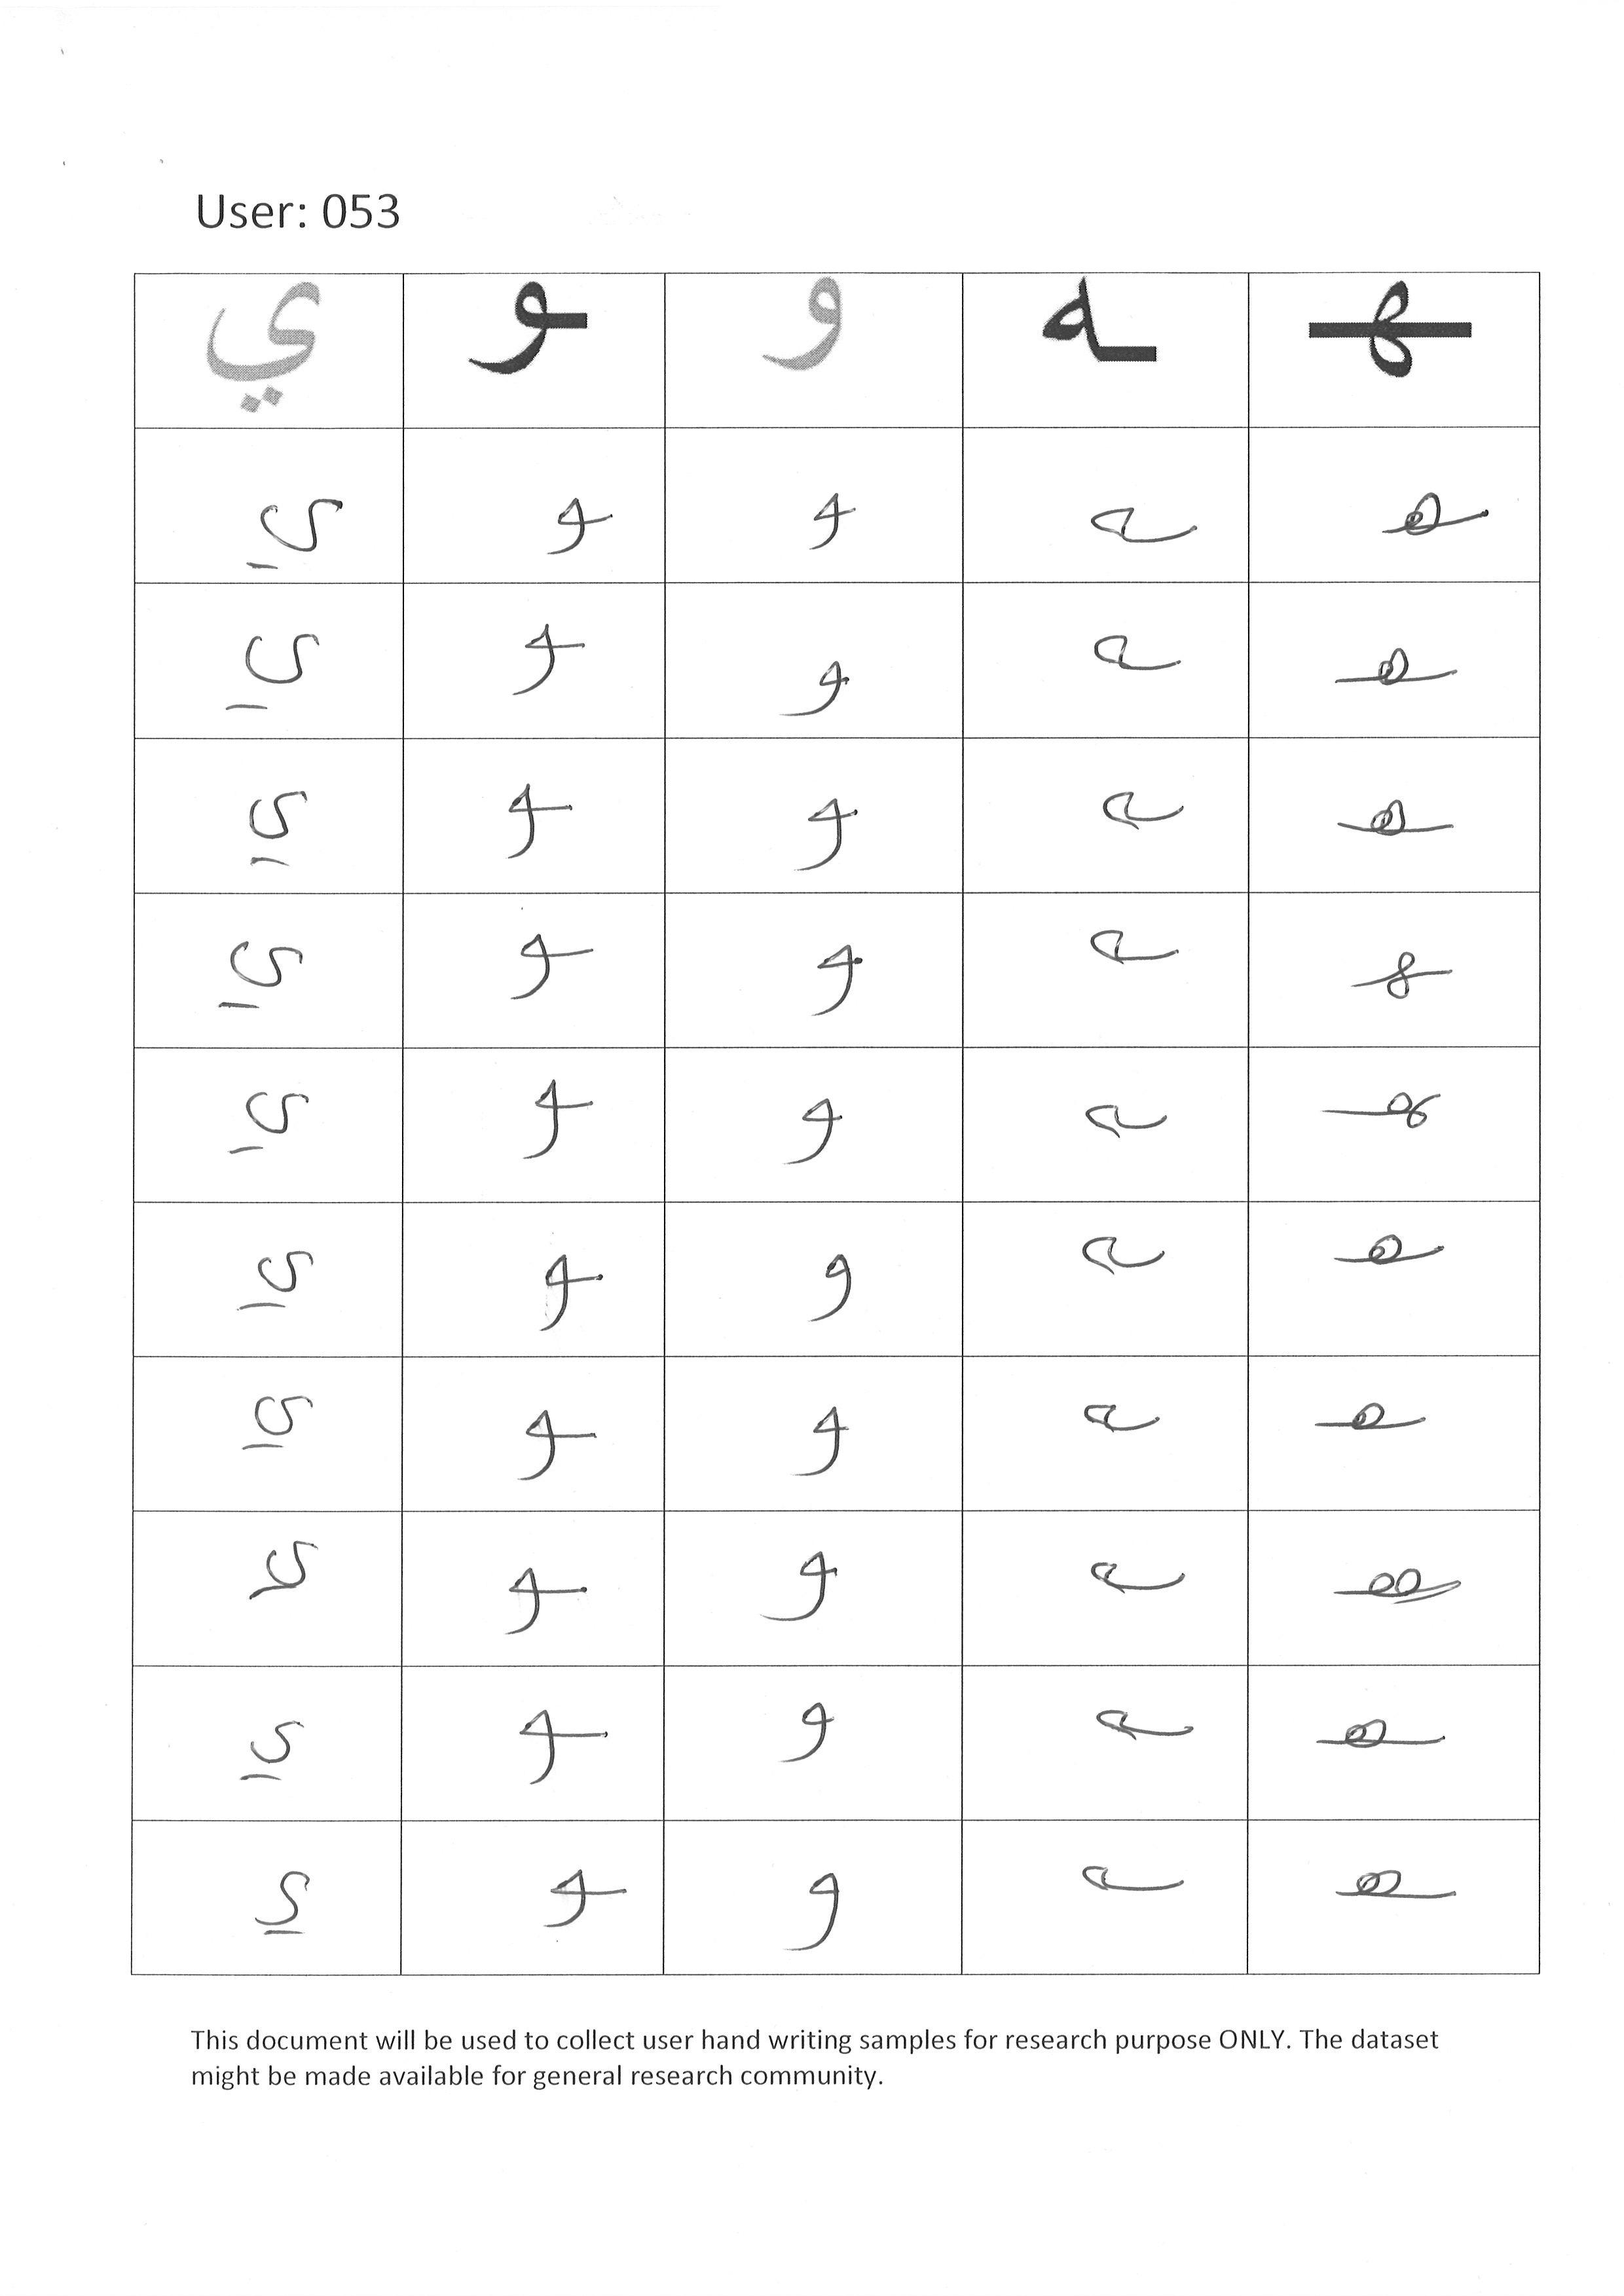 User: 053
ي ـو و ـه ـهـ
ي ـو و ـه ـهـ
ي ـو و ـه ـهـ
ي ـو و ـه ـهـ
ي ـو و ـه ـهـ
ي ـو و ـه ـهـ
ي ـو و ـه ـهـ
ي ـو و ـه ـهـ
ي ـو و ـه ـهـ
ي ـو و ـه ـهـ
ي ـو و ـه ـهـ
This document will be used to collect user hand writing samples for research purpose ONLY. The dataset
might be made available for general research community.